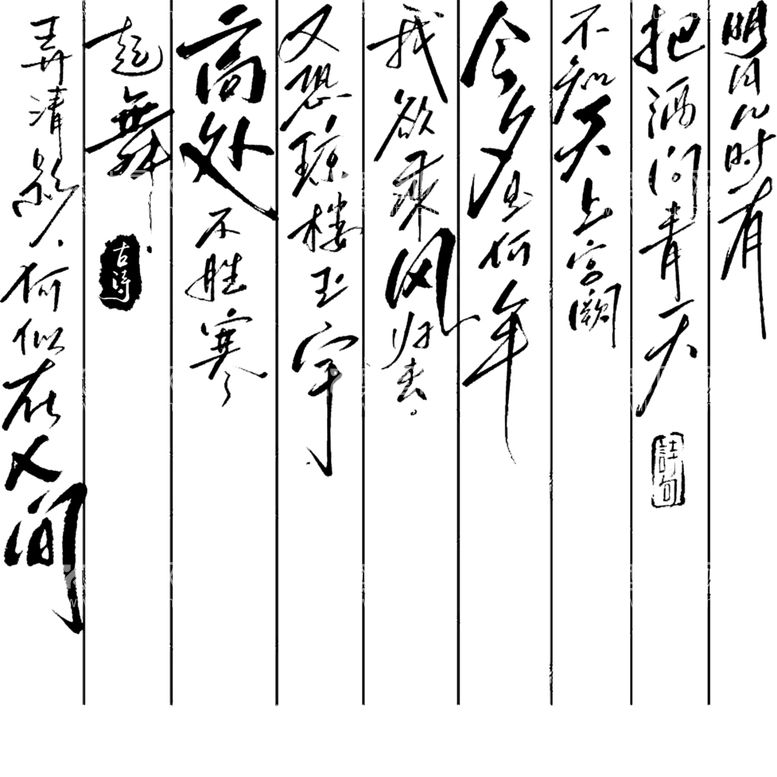 明月几时有
把酒问青天
诗句
不知天上宫阙
今夕是何年
我欲乘风归去
又恐琼楼玉宇
高处不胜寒
起舞
古诗
弄清影何似在人间